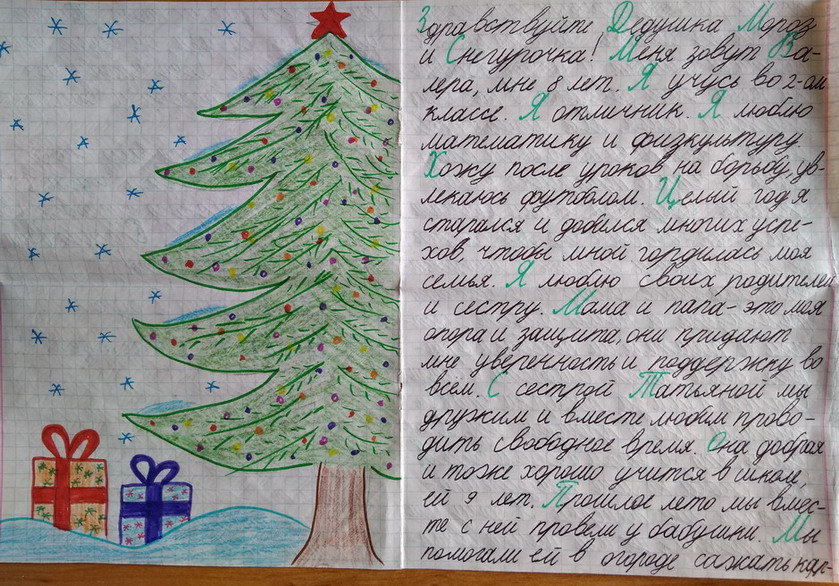 Здравствуйте Дедушка Мороз
и Снегурочка! Меня зовут Ва-
лера, мне 8 лет. Я учусь во 2-ом
классе. Я отличник. Я люблю
математику и физкультуру
Хожу после уроков на борьбу, ув-
лекаюсь футболом. Целый год я
старался и добился многих успе-
хов, чтобы мной гордилась моя
семья. Я люблю своих родителей
и сестру. Мама и папа - это моя
опора и защита, они придают
мне уверенность и поддержку во
всем. С сестрой Татьяной мы
дружим и вместе любим прово-
дить свободное время. Она добрая
и тоже хорошо учится в школе,
ей 9 лет. Прошлое лето мы вмес-
те с ней провели у бабушки. Мы
помогали ей в огороде сажать кар-